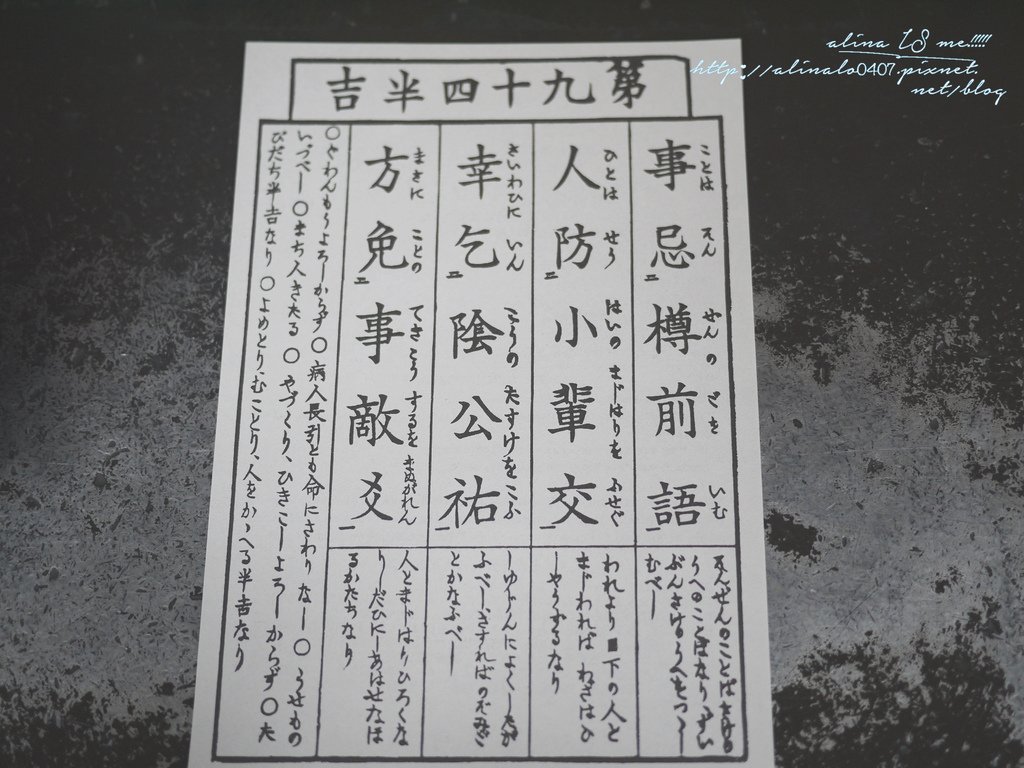 alina IS me!!!!!
http://alinalo0407.pixnet.
net/blog
第九十四半吉
ことは せんの いむ
事忌二樽前語一
のことば
うへのことばなり
むべし
ひとは せう はいの まじはりを ふせぐ
人防二小輩交一
われより 下の人と
まじわれば わざはひ
しやうずるなり
さいわひに いん こうの たすけをこふ
幸乞二陰公祐一
ふべし
とかなふべし
まさに ことの てきこう するを まぬがれん
方免二事敵爻一
人とまじはりひろくな
るかたちなり
○ぐわんもうよろしからず ○病人長引とも命にさわりなし ○うせもの
いづべし ○まち人きたる ○やづくり、ひきこしよろしからず ○た
びだち半吉なり ○よめとり、むことり、人をかゝへる半吉なり